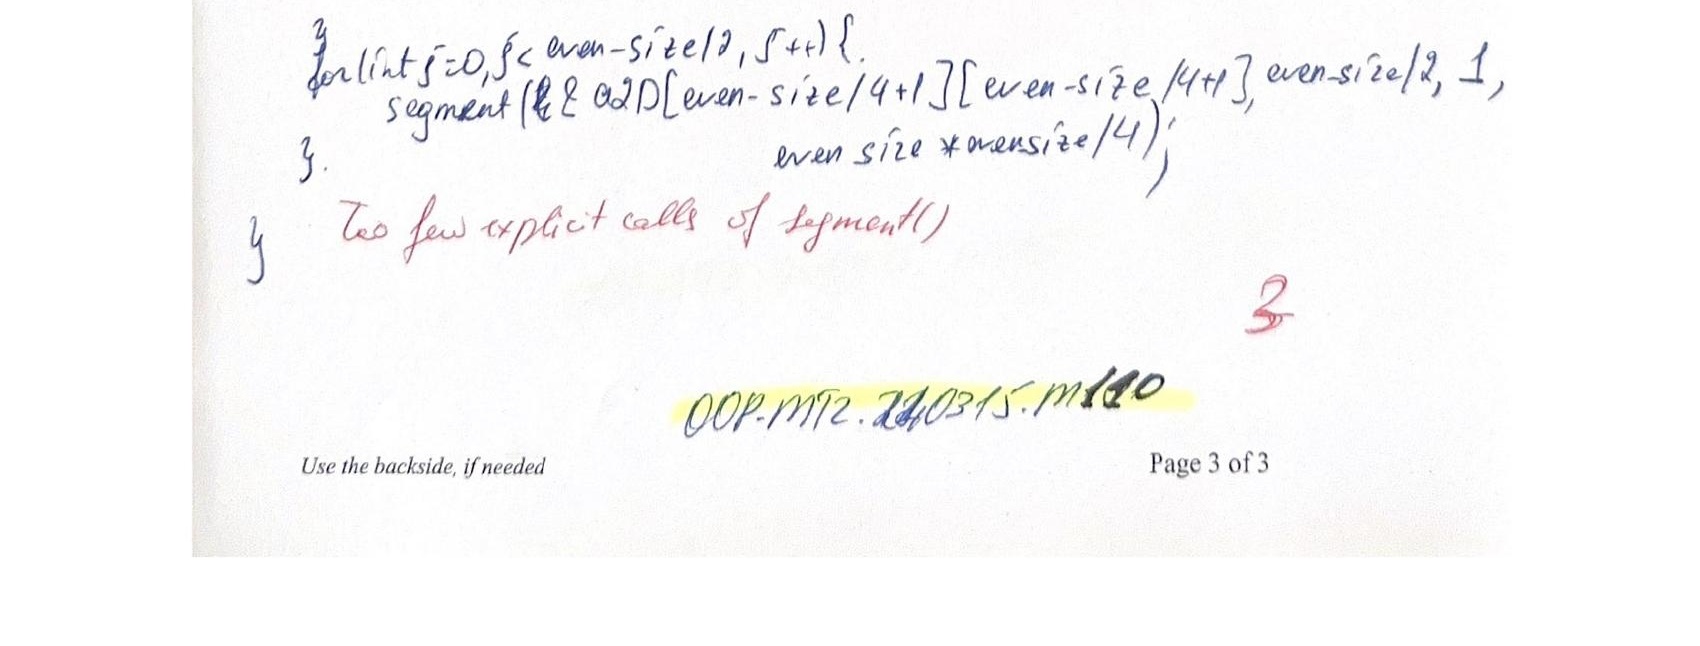 }
for(int j=0, j< even-size/2, j++) {.
segment(& a2D[even-size/4+1][even-size/4+1], even-size/2, 1,
even size * evensize/4);
}.
Too few explicit calls of segment()
}
3
OOP.MT2.220315.M110
Use the backside, if needed
Page 3 of 3